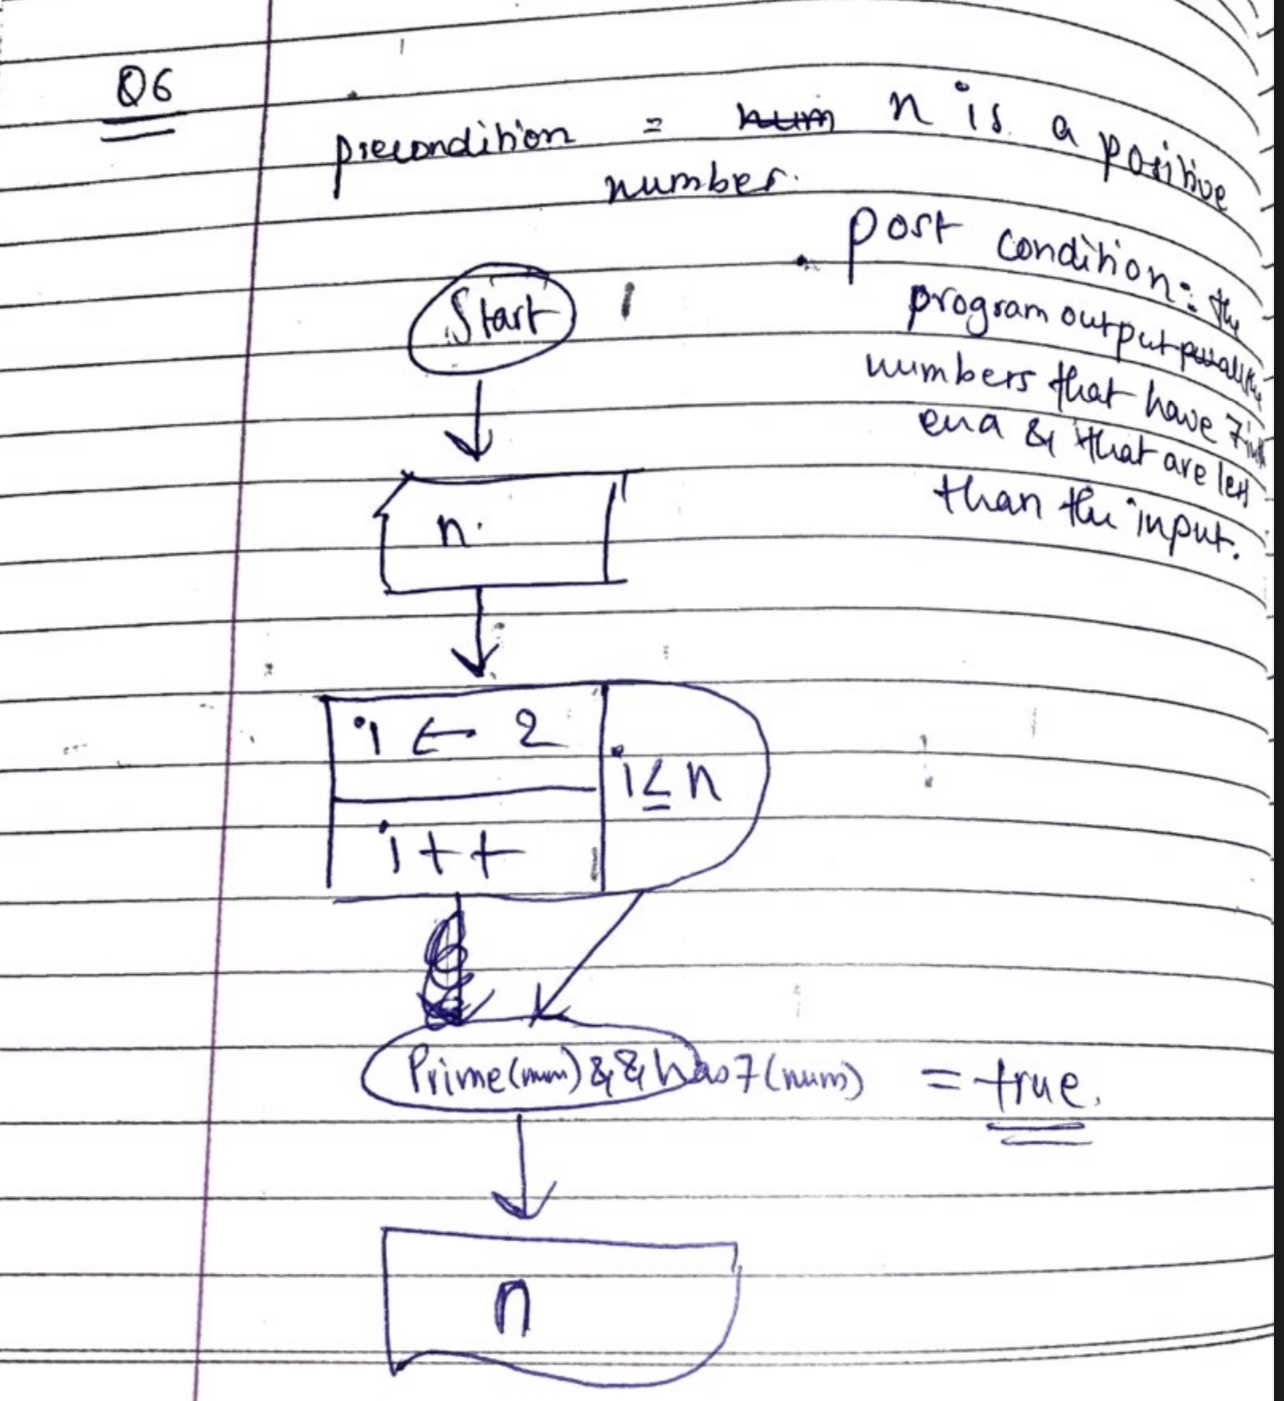 Q6
precondition = num n is a positive
number.
Post condition: the
program output all the
numbers that have 7 in
end & that are less
than the input.
Start
n
i ← 2
i ≤ n
i++
Prime(num) && has7(num) = true.
n